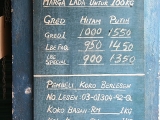 MARGA LADA UNTUK 100KG
GRED HITAM PUTIH
GREJI 1000 1550
LEC FAQ 950 1450
LEC SPECIAL 900 1350
PEMBELI KOKO BERLESEN
NO LESEN
KOKO BASAH RM 1KG